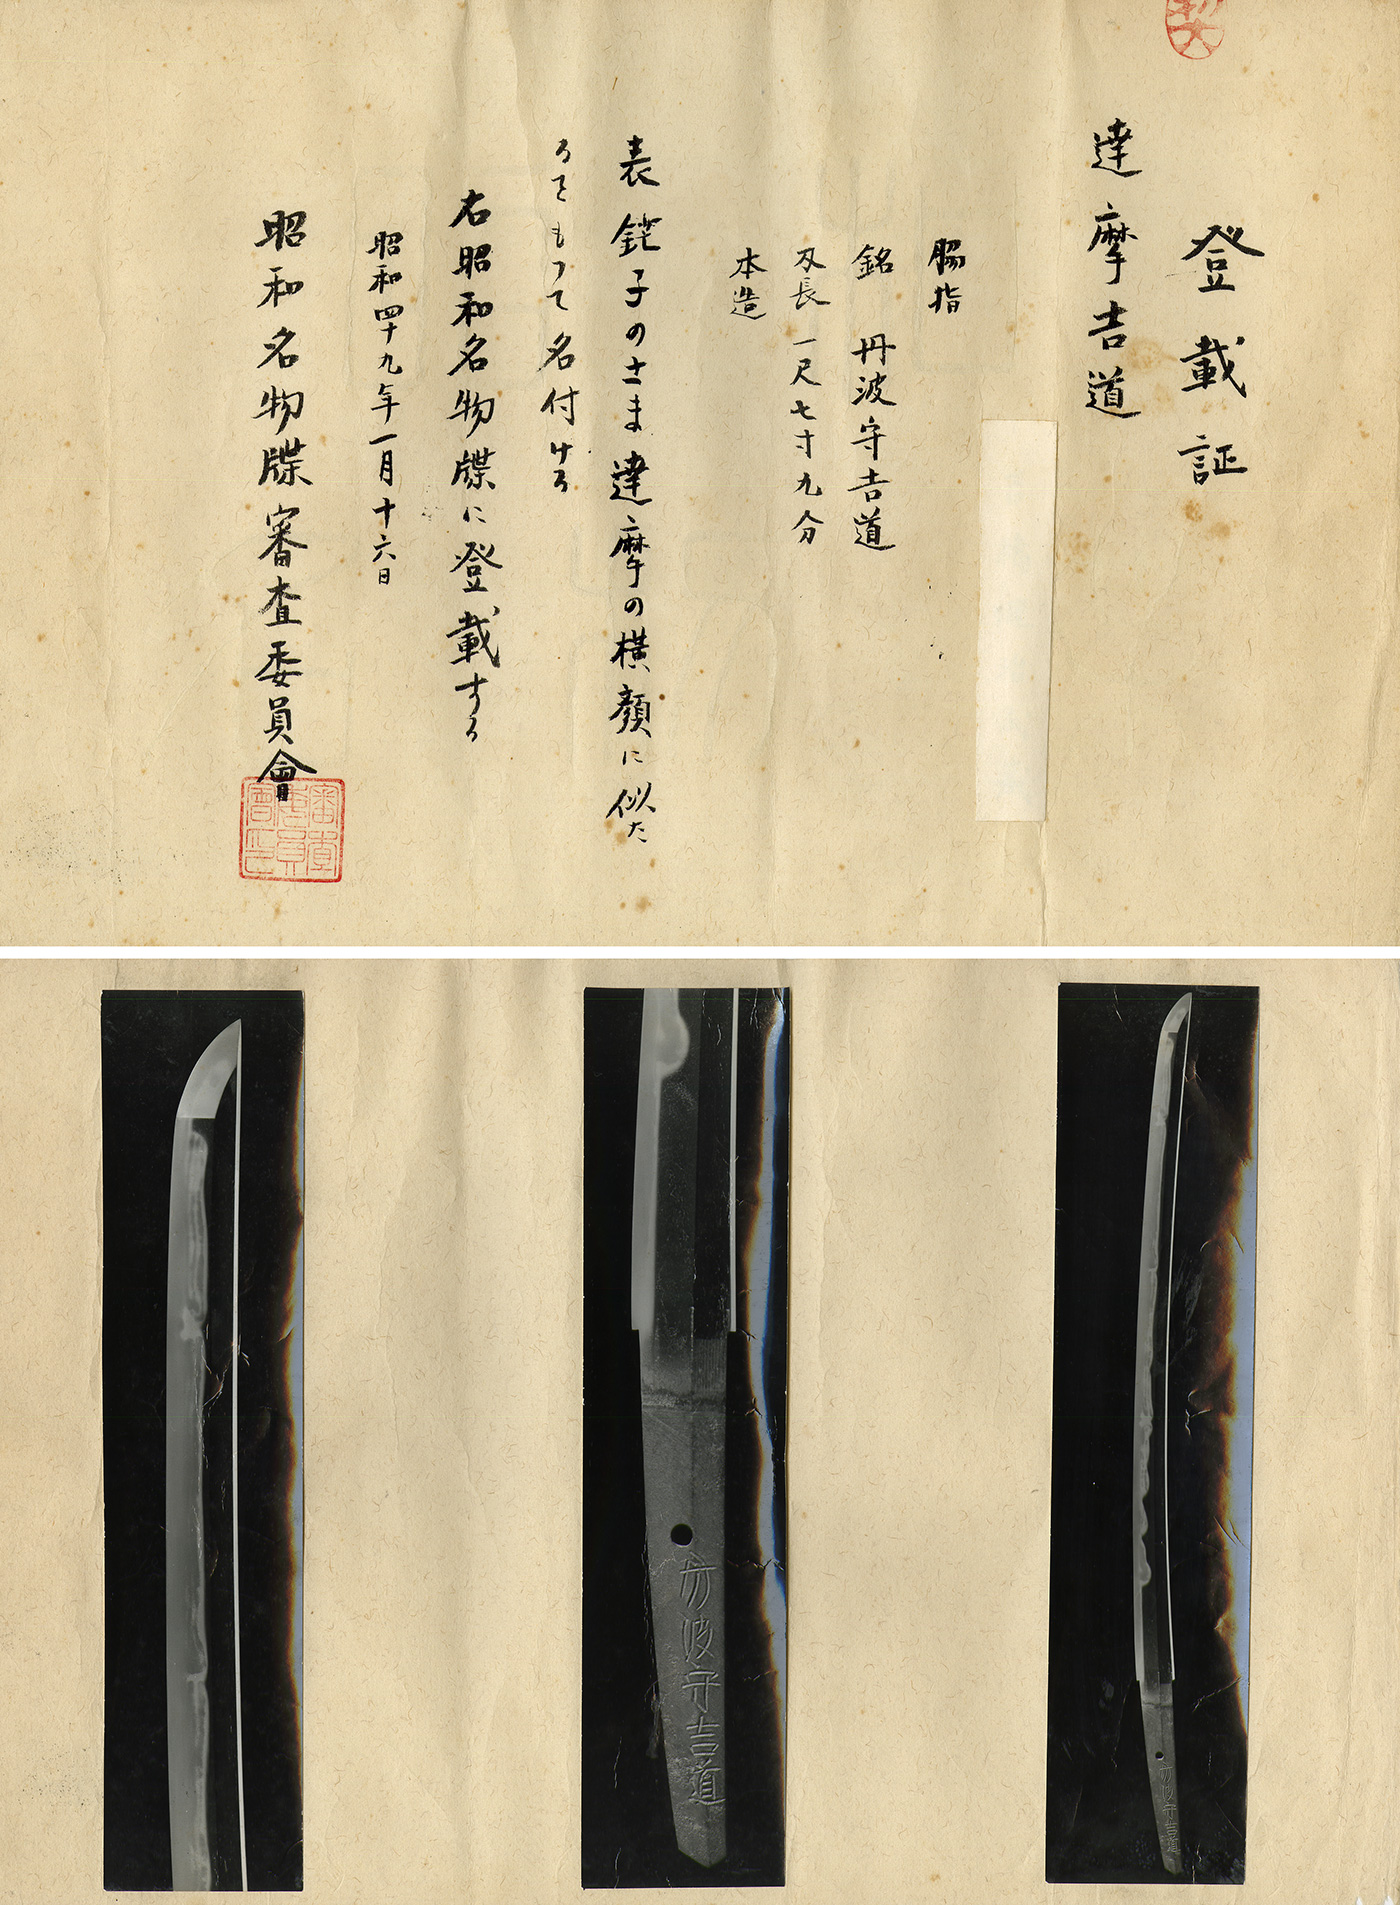 登載証
達摩吉道
脇指
銘 丹波守吉道
刄長 一尺七寸九分
本造
表鋩子のさま達摩の横顔に似た
るをもつて名付ける
右昭和名物牒に登載する
昭和四十九年一月十六日
昭和名物牒審査委員會
審査委員會印
丹波守吉道
丹波守吉道